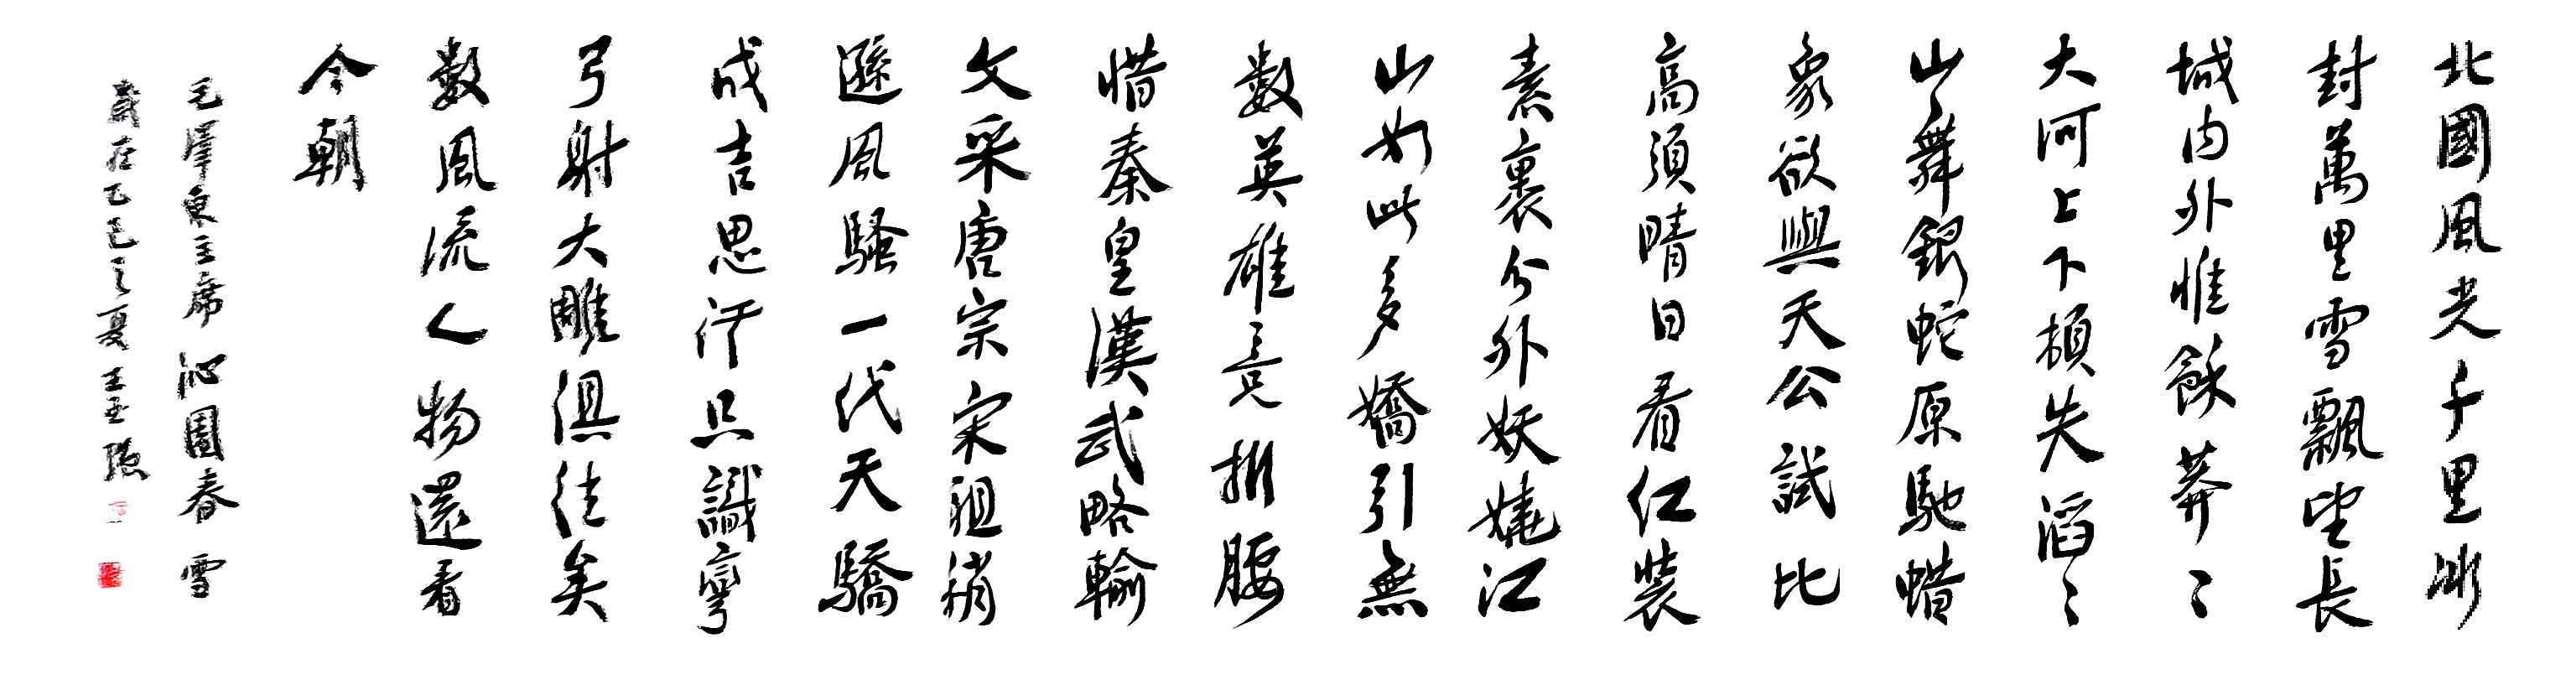 北國風光千里冰
封萬里雪飄望長
城内外惟餘莽〻
大河上下頓失滔〻
山舞銀蛇原馳蜡
象欲與天公試比
高須晴日看红裝
素裹分外妖嬈江
山如此多嬌引無
數英雄竞折腰
惜秦皇漢武略輸
文采唐宗宋祖稍
遜風騷一代天驕
成吉思汗只識彎
弓射大雕俱往矣
數風流人物還看
今朝
毛澤東主席 沁園春 雪
歲在乙巳之夏 王玉